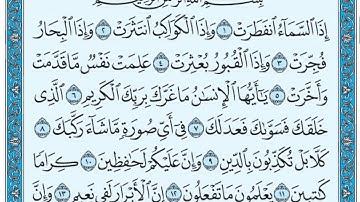 بِسْمِ اللَّهِ الرَّحْمَٰنِ الرَّحِيمِ
إِذَا السَّمَاءُ انفَطَرَتْ ١ وَإِذَا الْكَوَاكِبُ انتَثَرَتْ ٢ وَإِذَا الْبِحَارُ
فُجِّرَتْ ٣ وَإِذَا الْقُبُورُ بُعْثِرَتْ ٤ عَلِمَتْ نَفْسٌ مَّا قَدَّمَتْ
وَأَخَّرَتْ ٥ يَٰٓأَيُّهَا الْإِنسَٰنُ مَا غَرَّكَ بِرَبِّكَ الْكَرِيمِ ٦ الَّذِى
خَلَقَكَ فَسَوَّىٰكَ فَعَدَلَكَ ٧ فِىٓ أَىِّ صُورَةٍ مَّا شَآءَ رَكَّبَكَ ٨
كَلَّا بَلْ تُكَذِّبُونَ بِالدِّينِ ٩ وَإِنَّ عَلَيْكُمْ لَحَٰفِظِينَ ١٠ كِرَامًا
كَٰتِبِينَ ١١ يَعْلَمُونَ مَا تَفْعَلُونَ ١٢ إِنَّ الْأَبْرَارَ لَفِى نَعِيمٍ ١٣ وَإِنَّ